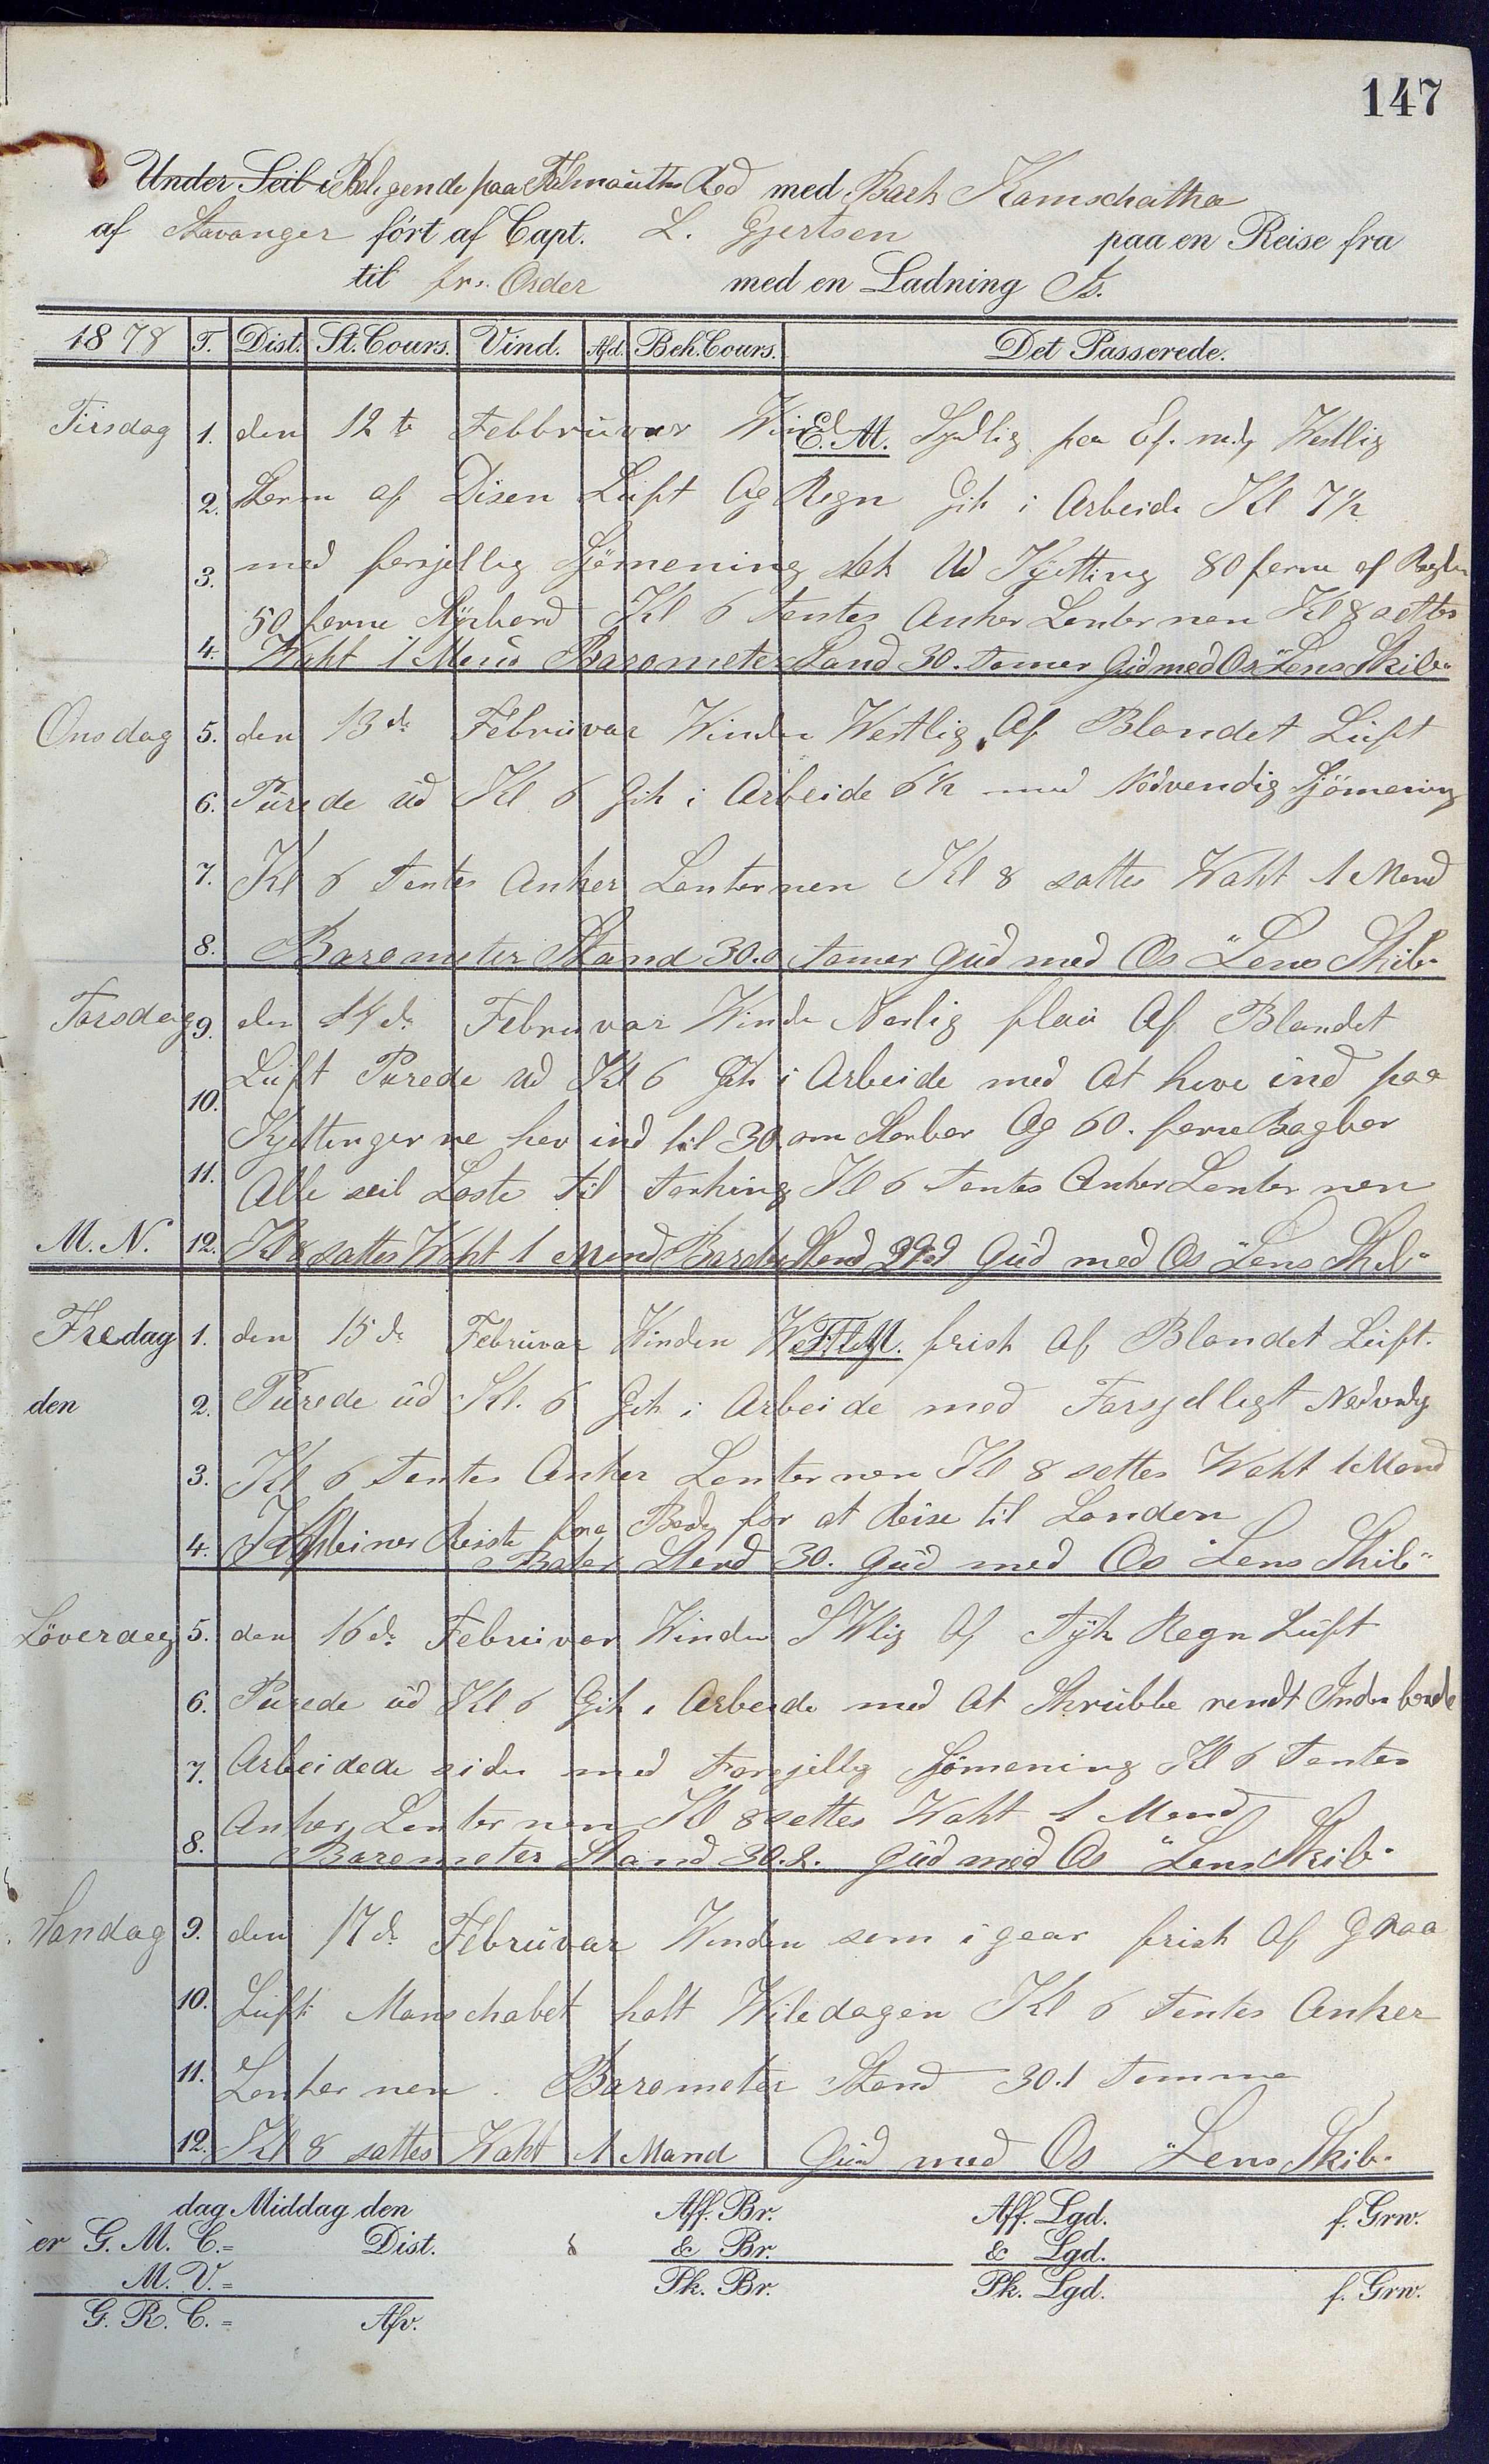 147
Under Seil i Beligende paa Falmouths Red med Bark Kamschatka
af Stavanger fört af Capt. L. Gjertsen paa en Reise fra
til for Order med en Ladning Is.
1878 T. Dist. St. Cours. Vind. Afd. Beh. Cours. Det Passerede.
Tirsdag 1. den 12te Febbruvar Wind E. M. Sydlig paa Ef. m.d, Westlig
2. Storm af Disen Luft Og Regn Gik i Arbeide Kl 7½
3. med forsjellig Sjömening stak Ud Kjetting 80 favne af
50 favne Styrbord Kl 6 Tentes Anker Lenternen Kl 8 settes
4. Waht 1 Mand Barometer Stand 30. Tomer Gud med Os "Lens Skib"
Onsdag 5. den 13de Februvar Winden Westlig Af Blandet Luft
6. Purede ud Kl 6 Gik i Arbeide 6½ med Nödvendig Sjömening
7. Kl 6 Tentes Anker Lenternen Kl 8 sattes Waht 1 Mand
8. Barometer Stand 30.0 Tomer Gud med Os "Lens Skib"
Torsdag 9. den 14de Februvar Winde Norlig flau Af Blandet
10. Luft Purede Ud Kl 6 Gik i Arbeide med At heve ind paa
Kjettingerne hev ind til 30 om Storbor Og 60. favne Bagbor
11. Alle seil Loste til Torking Kl 6 Tentes Anker Lenternen
M. N. 12. Kl 8 sattes Waht 1 Mand Stand Gud med Os "Lens Skib"
Fredag 1. den 15de Februvar Winden F. M. frisk Af Blandet Luft.
den 2. Purede ud Kl. 6 Gik i Arbeide med Forsjelligt
3. Kl 6 Tentes Anker Lenternen Kl 8 settes Waht 1 Mand
4. Reiste fra Bord for at Reise til London
Stand 30. Gud med Os "Lens Skib"
Löverdag 5. den 16de Februvar Winden SWlig Af Tÿk Regn Luft
6. Purede ud Kl 6 Gik i Arbeide med At Skrubbe rendt Inden borde
7. Arbeidede siden med Forsjellig Sjömening Kl 6 Tentes
Anker Lenternen Kl 8 settes Waht 1 Mand
8. Barometer Stand 30.2. Gud med Os "Lens Skib"
Sandag 9. den 17de Februvar Winden som igaar frisk Af Graa
10. Luft Manschabet holt Wiledagen Kl 6 Tentes Anker
11. Lenternen. Barometer Stand 30.1 Tomme
12. Kl 8 sattes Waht 1 Mand Gud med Os "Lens Skib"
dag Middag den Aff. Br. Aff. Lgd. f. Grw.
er G. M. C.= Dist. & Br. & Lgd.
M. V.= Pk. Br. Pk. Lgd. f. Grw.
G. R. C.= Afv.